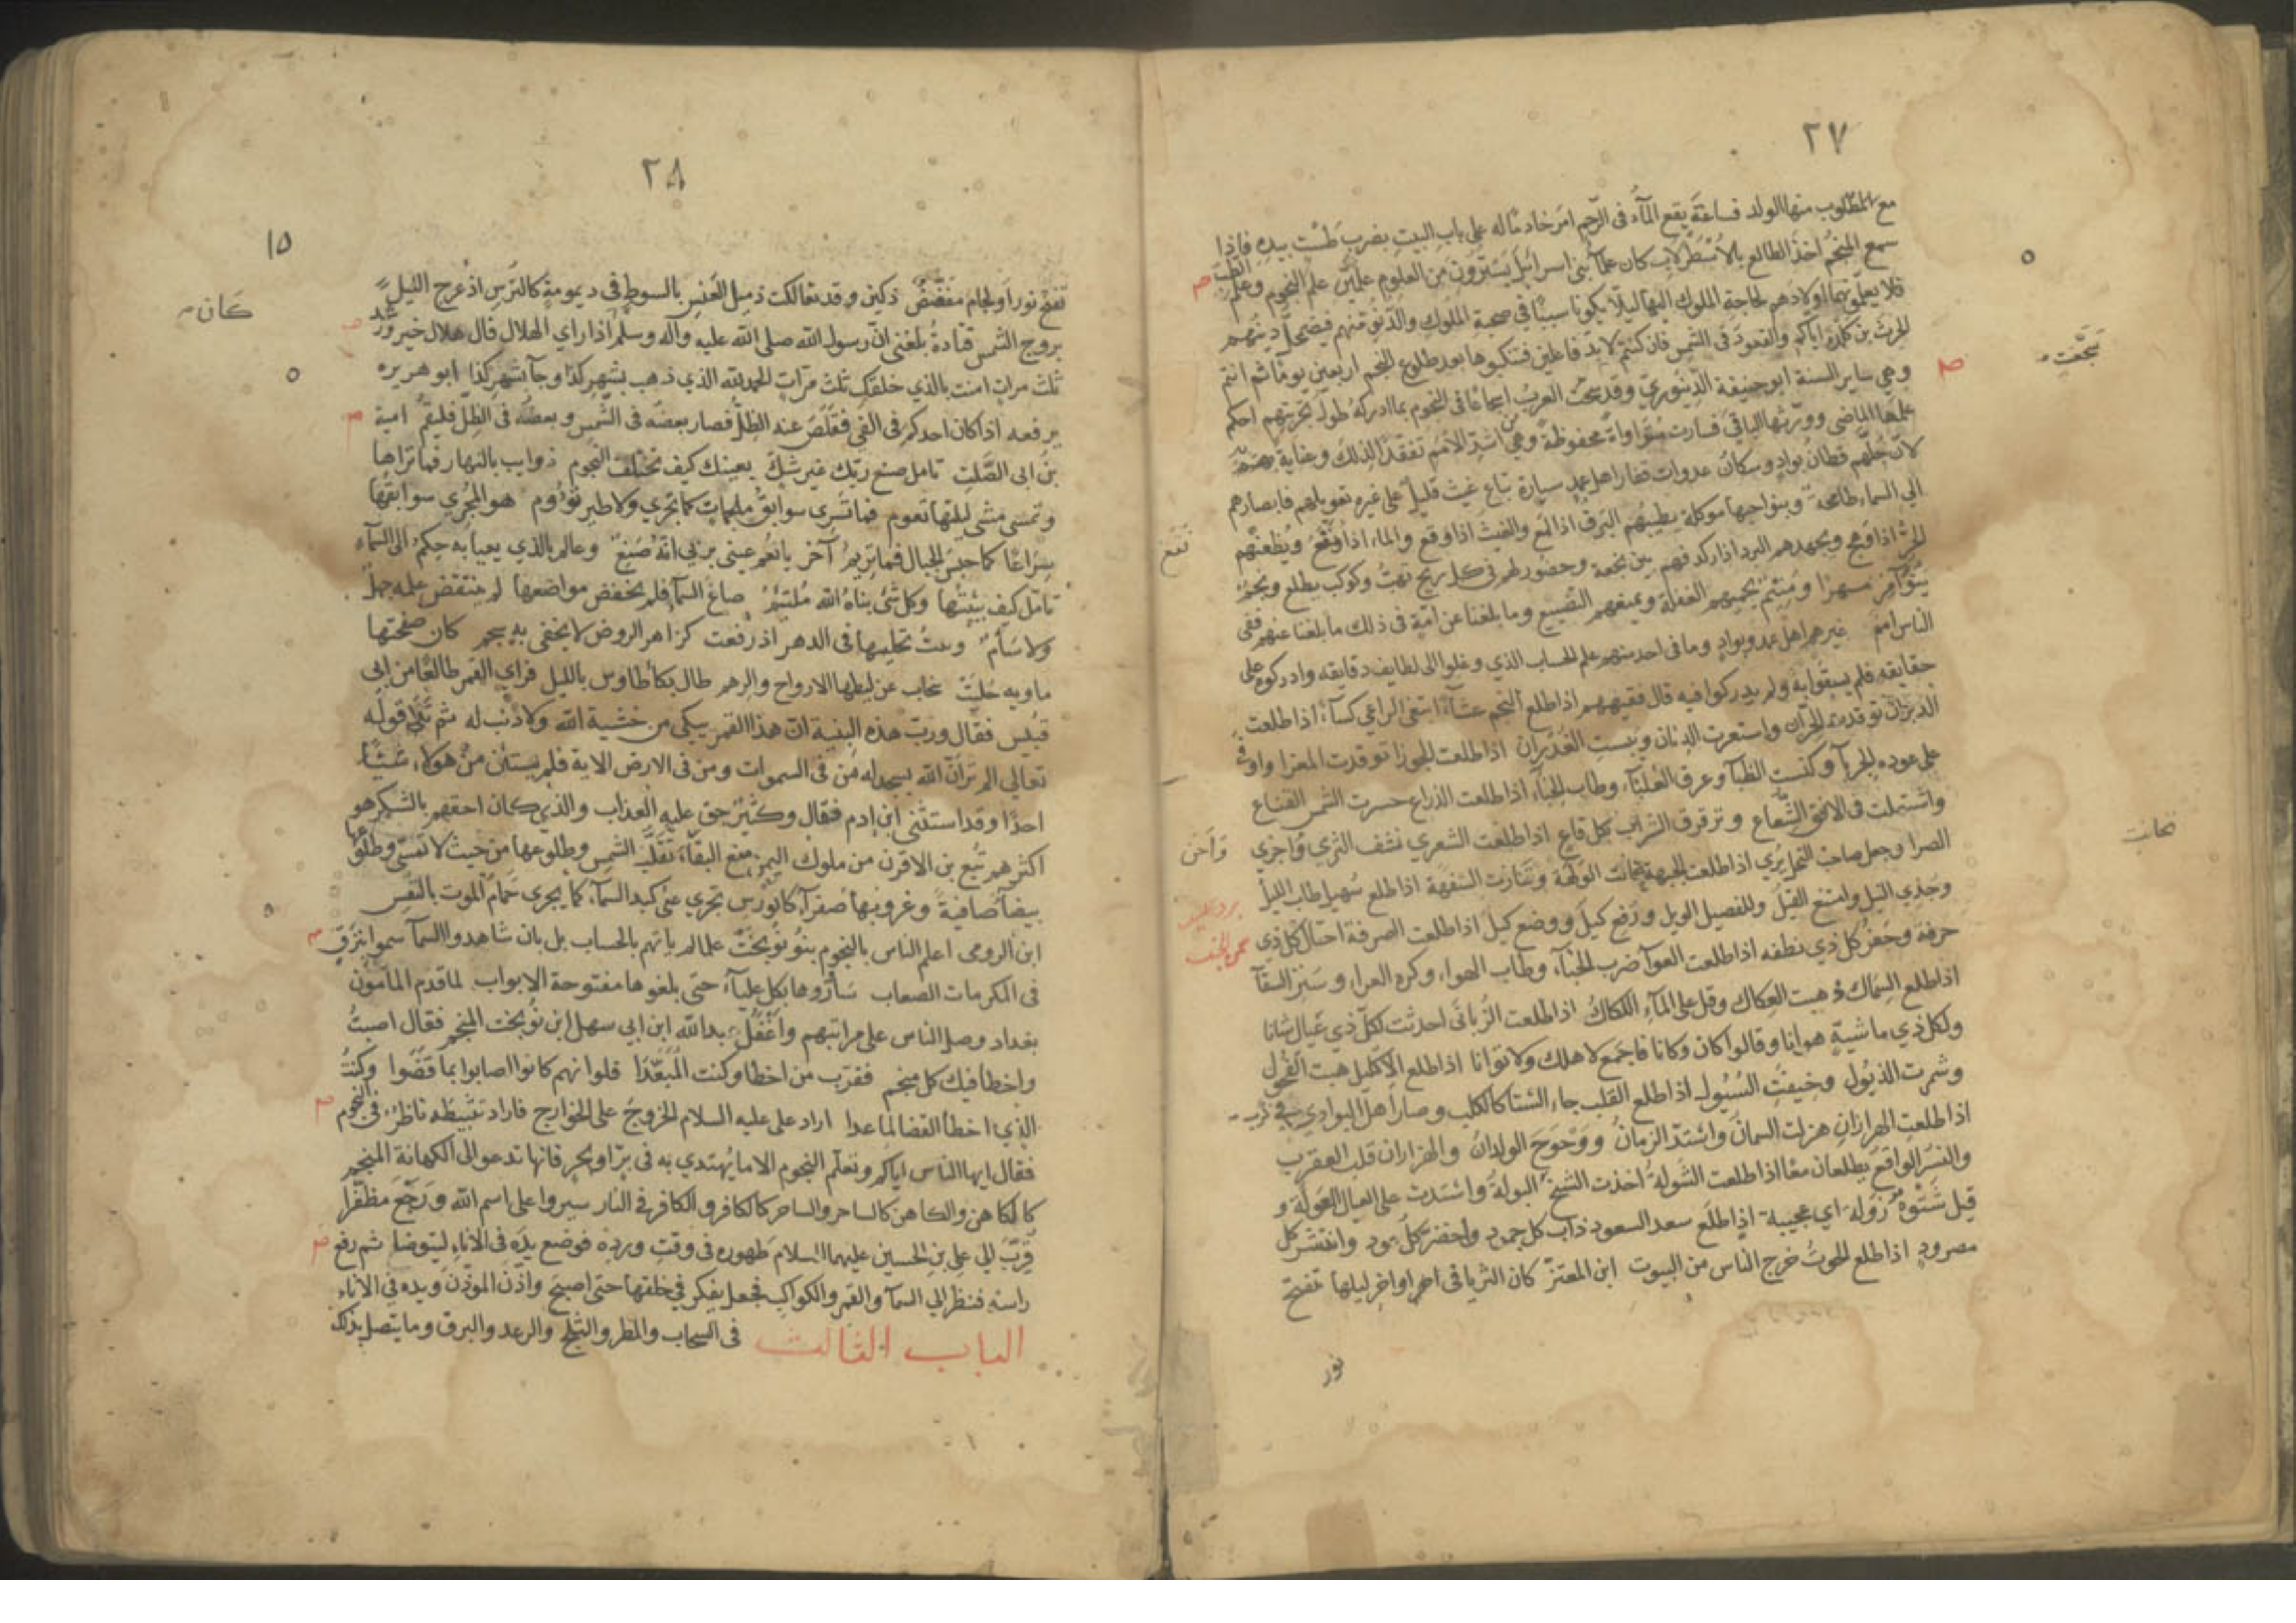 ٢٧
مع المطلوب منها الولد فساعة يقع المآء فى الرّحم امر خادمًا له على باب البيت يضرب طست بيده فاذا
سمع المنجم اخذ الطالع بالاسطرلاب كان علمآ بنى اسرائيل يسترون من العلوم علمين علم النجوم وعلم الطب
فلا يعلمونهما اولادهم لحاجة الملوك اليهما ليلا يكونا سببًا في صحبة الملوك والدنو منهم فيضمحل دينهم
الحرث بن كلدة اياكم والقعود فى الشمس فان كنتم لابد فاعلين فتنكبوها بعد طلوع النجم اربعين يوما ثم انتم
وهي ساير السنة ابو حنيفة الدينوري وقد سجت العرب اسجاعًا فى النجوم بما ادركه طول تجربتهم احكم
علمها الماضى وورثها الباقي فسارت متواواة محفوظة وهي من اشد الامم تفقدا لذلك وعناية به
لان جلهم قطان بواد وسكان عدوات قفار اهل عمد سيارة تباع غيث قليل على غيره تعويلهم فابصارهم
الي السماء طامحة وبنواحيها موكلة يطيبهم البرق اذا لمع والغيث اذا وقع والماء اذا نقع ويظعنهم
الحر اذا وهج ويجهدهم البرد اذا ركد فهم بين نجعة وحضور لهم فى كل ريح تهب وكوكب يطلع ونجم
يسهرا ومنتم يحميهم الغفلة ويمنعهم التضييع وما بلغنا عن امة فى ذلك ما بلغنا عنهم ففى
الناس امم غيرهم اهل عمد وبواد وما فى احد منهم علم الحساب الذي وغلوا الى لطايف دقايقه وادركوه على
حقايقه فلم يسبقوا به ولم يدركوا فيه قال فقيههم اذا طلع النجم عشآء ابتغى الراعي كسآء اذا طلعت
الدبران توقدت الحزان واستعرت الذنان ويبست الغدران اذا طلعت الجوزا توقدت المعزا واوفى
على عوده الحربآ وكنست الظبآ وعرق العلبآء وطاب الخبآء اذا طلعت الذراع حسرت الشمس القناع
واشتملت فى الافق الشعاع وترقرق الشراب بكل قاع اذا طلعت الشعري نشف الثري واجن
الصرا وجعل صاحب النخل يري اذا طلعت الجبهة تحانت الولهة وتنازت السفهة اذا طلع سهيل طاب الليل
وجذي النيل وامتنع القيل وللفصيل الويل ورفع كيل ووضع كيل اذا طلعت الصرفة احتال كل ذي
حرفة وجفر كل ذي نطفه اذا طلعت العوآ ضرب الخبآء وطاب الهواء وكره العراء وشنن السقآ
اذا طلع السماك ذهبت العكاك وقل على المآء اللكاك اذا طلعت الزبانى احدثت لكل ذي عيال شانا
ولكل ذي ماشية هوانا وقالوا كان وكانا فاجمع لاهلك ولا توانا اذا طلع الاكليل هبت الفحول
وشمرت الذيول وخيفت السيول اذا طلع القلب جاء الشتا كالكلب وصار اهل البوادي فى كرب
اذا طلعت الهراران هزلت السمان واشتد الزمان ووحوح الولدان والهراران قلب العقرب
والنسر الواقع يطلعان معا اذا طلعت الشولة اخذت الشيخ البولة واشتدت على العيال العولة و
قيل شتوة زولة اي عجيبة اذا طلع سعد السعود ذاب كل جمود واخضر كل عود وانتشر كل
مصرود اذا طلع الحوت خرج الناس من البيوت ابن المعتز كان الثريا فى اخر اواخر ليلها تفتح
نور
نقع
واجن
تحانت
سجعت
٢٨
١٥
تفتح نور او لجام مفضض ذكين وقد تعالكت ذميل العنس بالسوط فى ديمومة كالترس اذ عرج الليل
بروج الشمس قتادة بلغنى ان رسول الله صلى الله عليه وآله وسلم اذا راي الهلال قال هلال خير ورشد
ثلث مرات امنت بالذي خلقك ثلث مرات الحمد لله الذي ذهب بشهر كذا وجآ بشهر كذا ابو هريره
يرفعه اذا كان احدكم فى الفئ فقلص عنه الظل فصار بعضه فى الشمس وبعضه فى الظل فليقم امية
بن ابى الصلت تامل صنع ربك غير شك بعينك كيف تختلف النجوم ذوايب بالنهار فما تراها
وتمسى مشى ليلتها تعوم فما تسرى سوابق ملجمات كما تجري ولا طير تؤوم هو المجرى سوابقها
سراعًا كما حبس الجبال فما تريم آخر يا نعم عينى بربى انه صنع وعالم بالذي يعيا به حكم الى السمآء
تامل كيف بينتها وكل شئ بناه الله ملتئم صاغ السمآ فلم يخفض مواضعها لم ينتقض علمه جهل
ولا سأم وعث تحليها فى الدهر اذ رفعت كزاهر الروض لا يخفى به نجم كان صفحتها
ماويه حليت غاب عن ليطها الارواح والرهم طال بكأ طاوس بالليل فراي القمر طالعًا من ابي
قبيس فقال ورب هذه البنية ان هذا القمر يبكى من خشية الله ولا ذنب له ثم تلا قوله
تعالى الم تر ان الله يسجد له من فى السموات ومن فى الارض الاية فلم يستثن من هولاء شيئا
احدًا وقد استثنى ابن ادم فقال وكثير حق عليه العذاب والذي كان احقهم بالشكر هو
اكثرهم تبع بن الاقرن من ملوك اليمن منع البقآء تقلب الشمس وطلوعها من حيث لا تمسى وطلوعها
بيضآ صافية وغروبها صفرآء كالورس تجري على كبد السمآء كما يجرى حمام الموت بالنفس
ابن الرومى اعلم الناس بالنجوم بنو نوبخت علما لم ياتهم بالحساب بل بان شاهدوا السمآ سموا بترق
فى المكرمات الصعاب ساوروها بكل عليآء حتى بلغوها مفتوحة الابواب لما قدم المامون
بغداد وصل الناس على مراتبهم واغفل عبدالله ابن ابي سهل ابن نوبخت المنجم فقال اصبت
واخطا فيك كل منجم فقرب من اخطا وكنت المبعدا فلو انهم كانوا اصابوا بما قضوا وكنت
الذي اخطأ القضا لما عدا اراد على عليه السلام الخروج على الخوارج فاراد تثبيطه ناظر فى النجوم
فقال ايها الناس اياكم وتعلم النجوم الا ما يهتدي به فى بر او بحر فانها تدعو الى الكهانة المنجم
كالكاهن والكاهن كالساحر والساحر كالكافر والكافر فى النار سيروا على اسم الله ورجع مظفرا
قرب الي على بن الحسين عليهما السلام طهوره فى وقت ورده فوضع يده فى الاناء ليتوضا ثم رفع
راسه فنظر الي السمآ والقمر والكواكب فجعل يفكر في خلقها حتى اصبح واذن الموذن ويده فى الاناء
الباب الثالث فى السحاب والمطر والثلج والرعد والبرق وما يتصل بذلك
كان